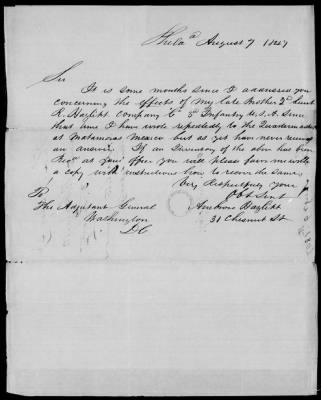 Phila a August 7 1847
Sir
It is some months since I addressed you
concerning the effects of my late Brother 2d Lieut
R. Hazlitt Company C 5th Infantry U.S.A. Since
that time I have wrote repeatedly to the Quartermaster
at Matamoras Mexico but as yet have never received
an answer. If an Inventory of the above has been
Recd at your Office you will please favor me with
a copy with instructions how to recover the same.
Very Respectfully your
Obt Servt
To
The Adjutant General
Washington
D.C
Ambrose Hazlitt
31 Chesnut St